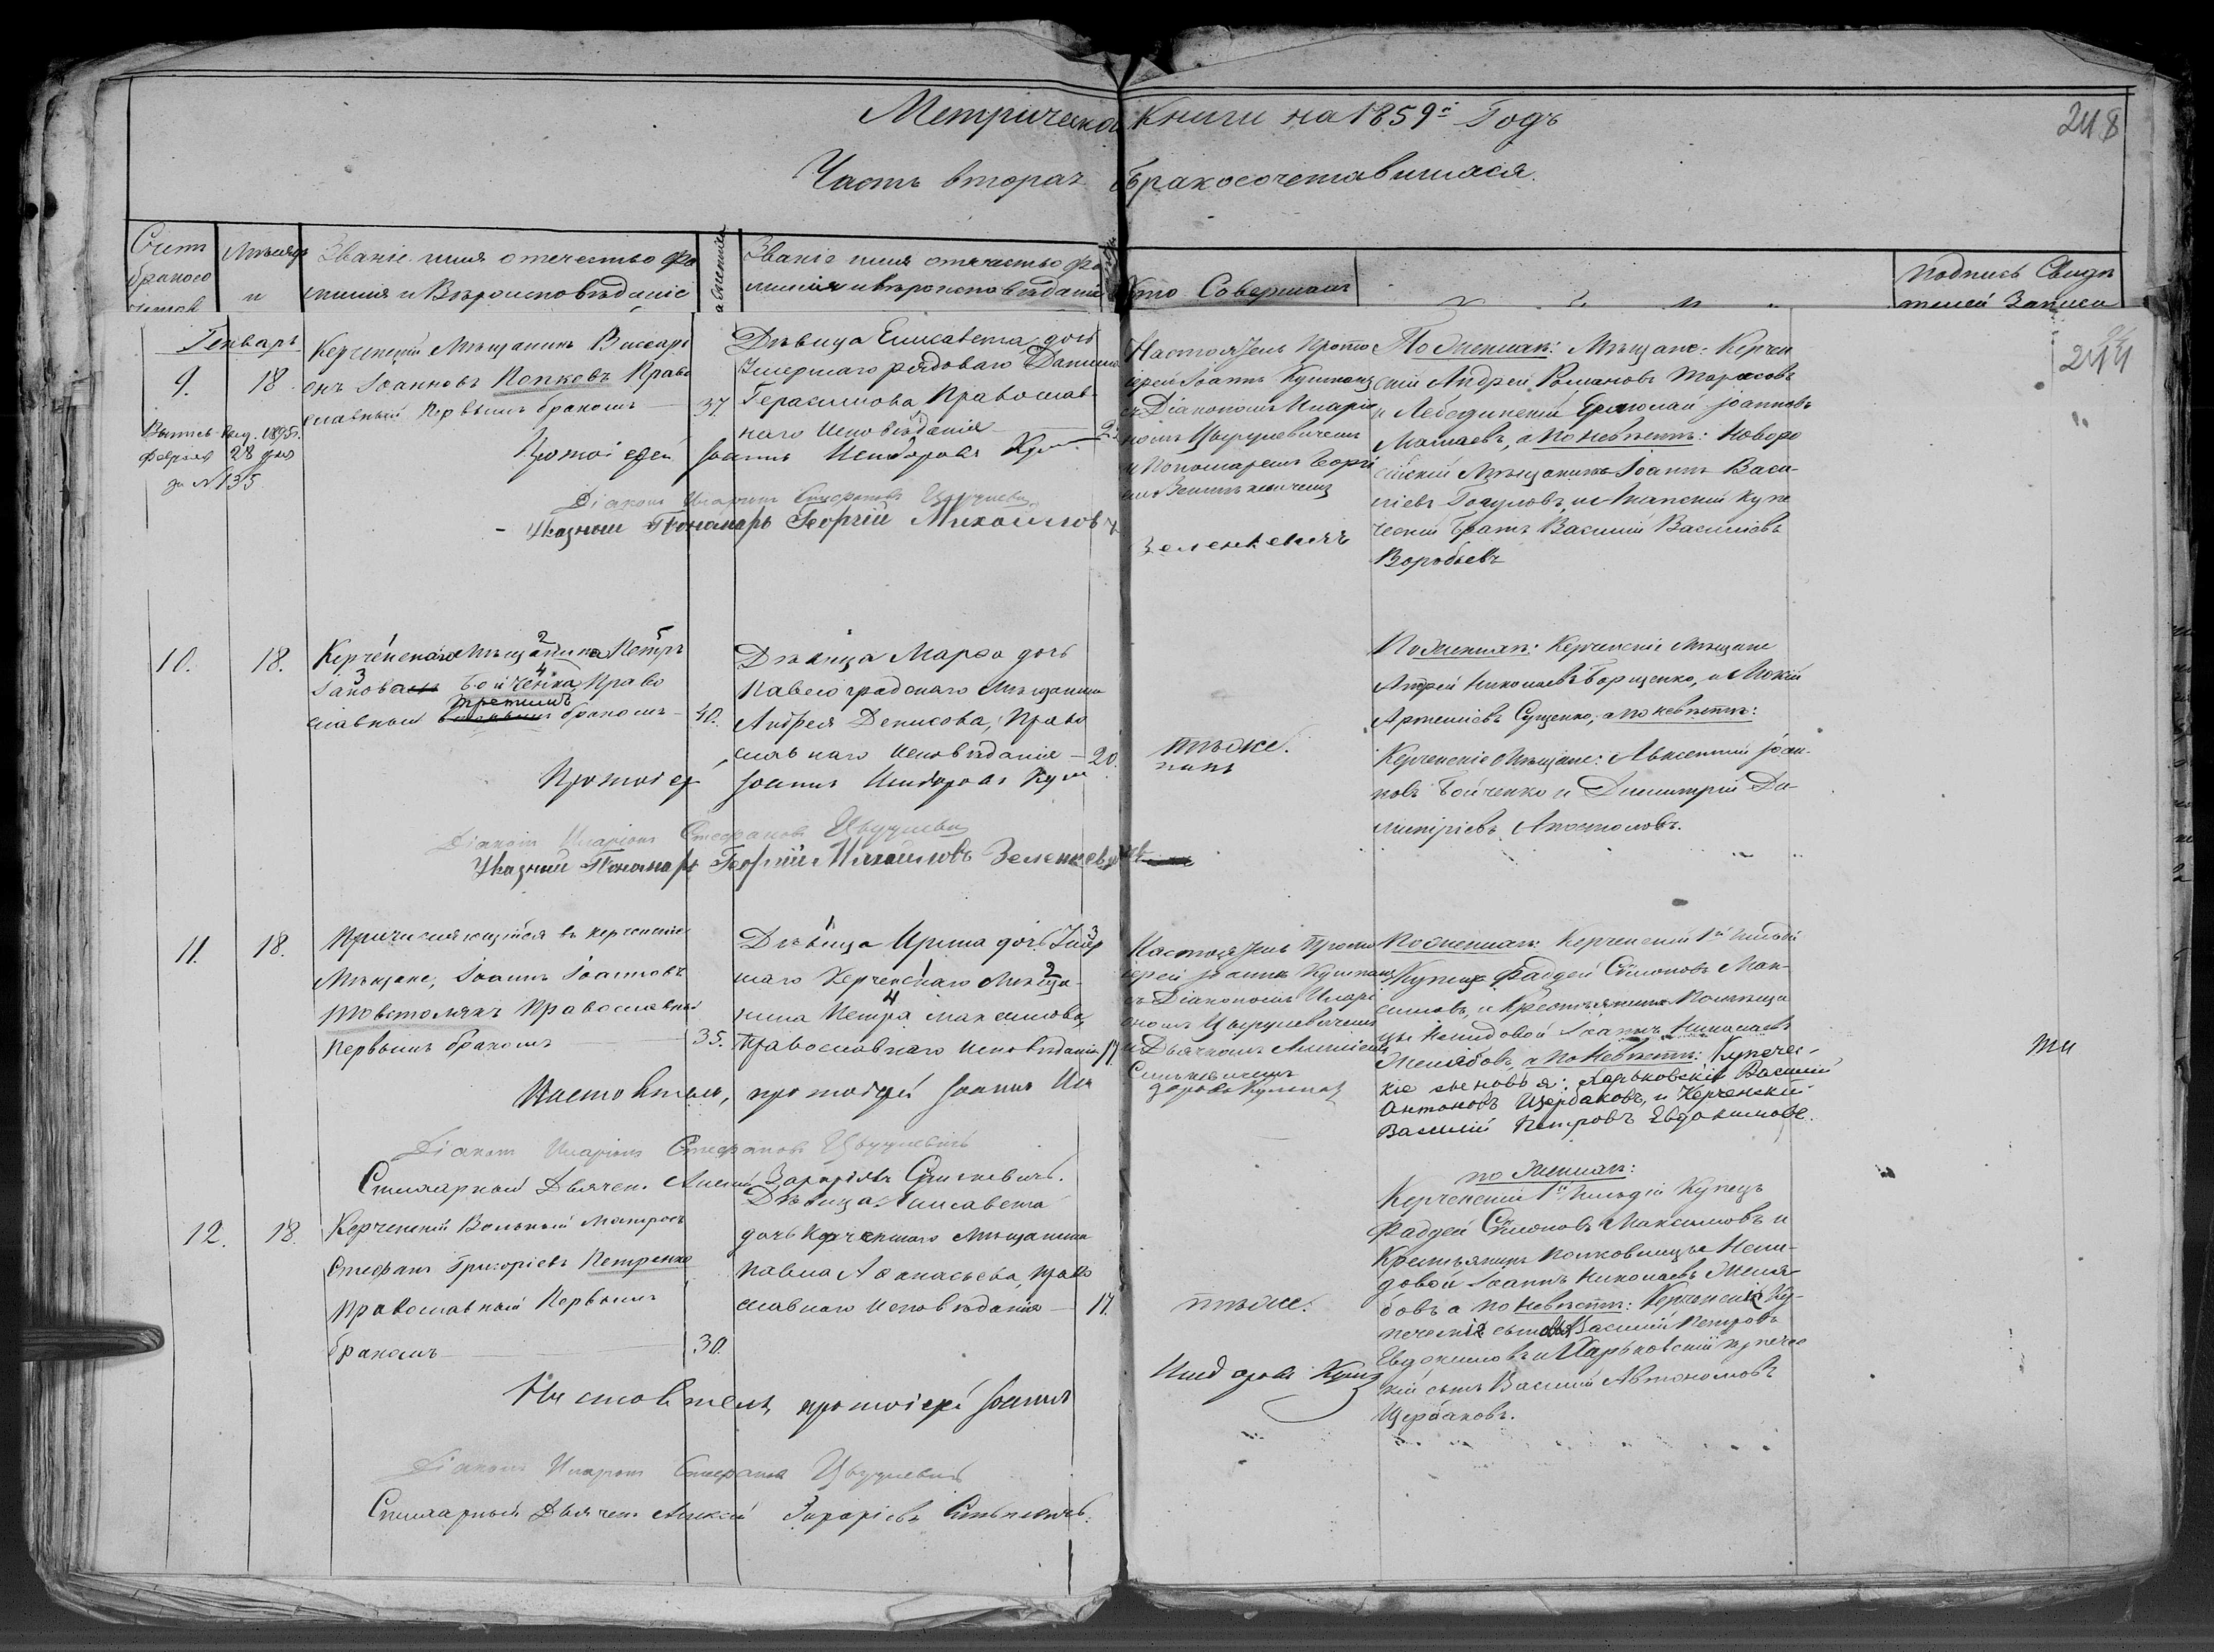 Метрической Книги на 1859й Годъ
248
Часть вторая бракосочетавшихся.
Счетъ браковъ
Мѣсяцъ и
Званіе имя отечество фа
милія и Вѣроисповѣданіе
Званіе имя отечество фа
милія и вѣроисповѣданіе
Кто Совершалъ
Подпись Свидѣ
телей Записи
Генварь
9. 18
Керченскій Мѣщанинъ Виссарі
онъ Іоанновъ Попковъ Право
славный Первымъ бракомъ 37.
Выпись выд. 1895 г.
Февраля 28 дня
за №135
Дѣвица Елисавета дочь
Умершаго рядоваго Данила
Герасимова, Православ
наго Исповѣданія
Настоятель Прото
іерей Іоаннъ
съ Діакономъ Иларіо
номъ
и Пономаремъ Георгі
емъ Зеленкевичемъ
По женихѣ: Мѣщане: Керчен
скій Андрей Романовъ Тарасовъ
и Лебединскій Ермолай Іоанновъ
Мамаевъ, а по невѣстѣ: Новоро
сійскій Мѣщанинъ Іоаннъ Васи-
ліевъ и Анапскій Купе
ческій братъ Василій Василіевъ
Воробьевъ
244
Протоіерей Іоаннъ Исидоровъ
Діаконъ Иларіонъ Стефановъ
Указный Пономарь Георгій Михайловъ
Зеленкевичъ
10. 18.
Керченскаго Мѣщанина Петръ
Іаковъ Бойченка Право
славный третьимъ бракомъ 40.
Дѣвица Марѳа дочь
Павелоградскаго Мѣщанина
Андрея Денисова, Право
славнаго Исповѣданія 20.
Тѣже.
По женихѣ: Керченскіе Мѣщане
Андрей Николаевъ Борщенко, и Мокій
Артеміевъ Сущенко, а по невѣстѣ:
Керченскіе Мѣщане: Авксентій Іоан-
новъ Бойченко и Димитрій Ди-
митріевъ Апостоловъ.
Протоіер Іоаннъ Исидоровъ
Діаконъ Иларіонъ Стефановъ
Указный Пономарь Георгій Михайловъ Зеленкевичъ
11. 18.
Причисляющійся въ керченскіе
Мѣщане, Іоаннъ Іоанновъ
Товстолякъ Православный
Первымъ бракомъ 35.
Дѣвица Ирина дочь Умер
шаго Керченскаго Мѣща-
нина Петра Максимова,
Православнаго Исповѣданія 17.
Настоятель Прото
іерей Іоаннъ
съ Діакономъ Иларі
ономъ
и Дьячкомъ Алексіемъ
По женихѣ Керченскій 1й Гильдіи
Купецъ Фаддей Симоновъ Мак-
симовъ, и Крестьянинъ Полковни
цы Неѣлидовой Іоаннъ Николаевъ
Желябовъ, а По Невѣстѣ: Купечес-
кіе сыновья: Харьковскій Василій
Антоновъ Щербаковъ, и Керченскій
Василій Петровъ Евдокимовъ.
Настоятель, протоіерей Іоаннъ Иси
Діаконъ Иларіонъ Стефановъ
Стихарный Дьячекъ Алексій Захаріевъ
12. 18.
Керченскій Вольный Матросъ
Стефанъ Григоріевъ Петренко
Православный Первымъ
бракомъ 30.
Дѣвица Елисавета
дочь Керченскаго Мѣщанина
Павла Аѳанасьева, Право
славнаго Исповѣданія 17.
Тѣже.
по Женихѣ:
Керченскій 1й Гильдіи Купецъ
Фаддей Симоновъ Максимовъ и
Крестьянинъ Полковницы Нели-
довой Іоаннъ Николаевъ Желя-
бовъ а по Невѣстѣ: Керченскій Ку-
печескій сынъ Василій Петровъ
Евдокимовъ и Харьковскій купечес
кій сынъ Василій Автономовъ
Щербаковъ.
Настоятель, протоіерей Іоаннъ
Исидоровъ
Діаконъ Иларіонъ Стефановъ
Стихарный Дьячекъ Алексій Захаріевъ